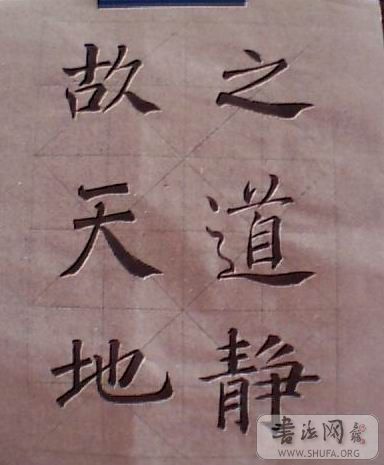 之道静
故天地
书法网
WWW.SHUFA.ORG